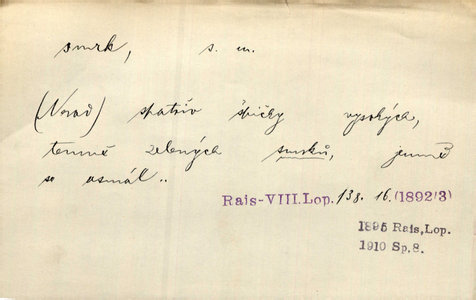 smrk, s. m.
(Novad) spatřiv špičky vysokých,
temně zelených smrků, jemně
se usmál..
Rais-VIII.Lop. 138. 16. (1892/3)
1895 Rais, Lop.
1910 Sp.8.